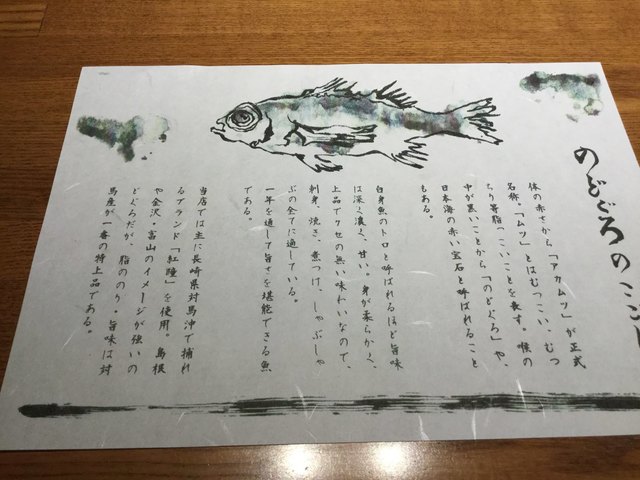 のどぐろのこと
体の赤さから「アカムツ」が正式
名称。「ムツ」とはむつっこい、むつ
ちり等脂っこいことを表す。喉の
中が黒いことから「のどぐろ」や、
日本海の赤い宝石と呼ばれること
もある。
白身魚のトロと呼ばれるほど旨味
は深く濃く、甘い。身が柔らかく、
上品でクセの無い味わいなので、
刺身、焼き、煮つけ、しゃぶしゃ
ぶの全てに適している。
一年を通して旨さを堪能できる魚
である。
当店では主に長崎県対馬沖で捕れ
るブランド「紅瞳」を使用。島根
や金沢、富山のイメージが強いの
どぐろだが、脂ののり。旨味は対
馬産が一番の特上品である。